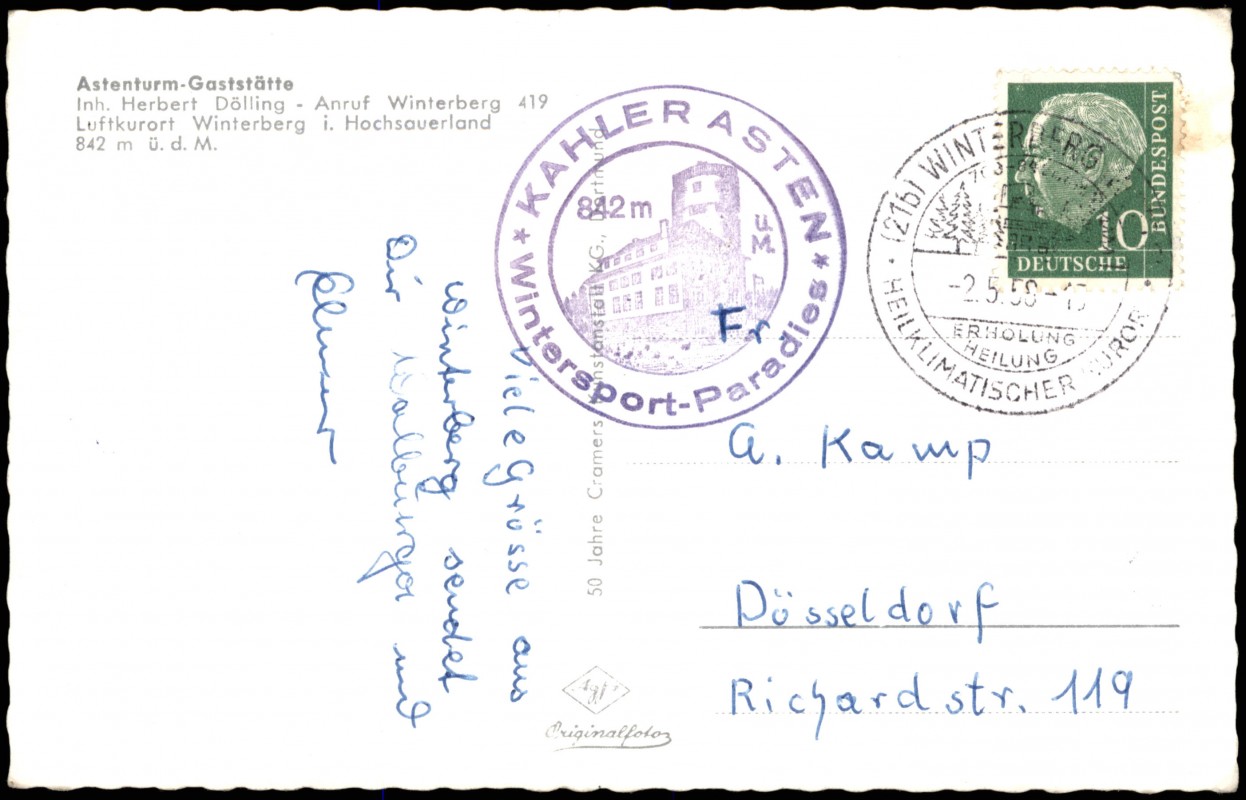 Astenturm-Gaststätte
Inh. Herbert Dölling - Anruf Winterberg 419
Luftkurort Winterberg i. Hochsauerland
842 m ü. d. M.
KAHLER ASTEN
842 m
* Wintersport-Paradies *
(21b) WINTERBERG
-2.5.58-
ERHOLUNG
HEILUNG
HEILKLIMATISCHER KUROR
10
BUNDESPOST
DEUTSCHE
Viele Grüsse aus
Winterberg sendet
Dir Walburga und
50 Jahre Cramers Kunstanstalt KG., Dortmund
Fr
A. Kamp
Düsseldorf
Richardstr. 119
Agfa
Originalfoto